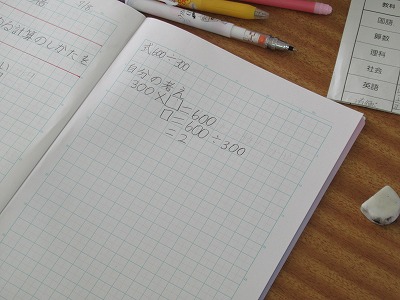 計算のしかたを
式600÷300
自分の考え
300×□=600
□=600÷300
=2
教科
国語
算数
理科
社会
英語